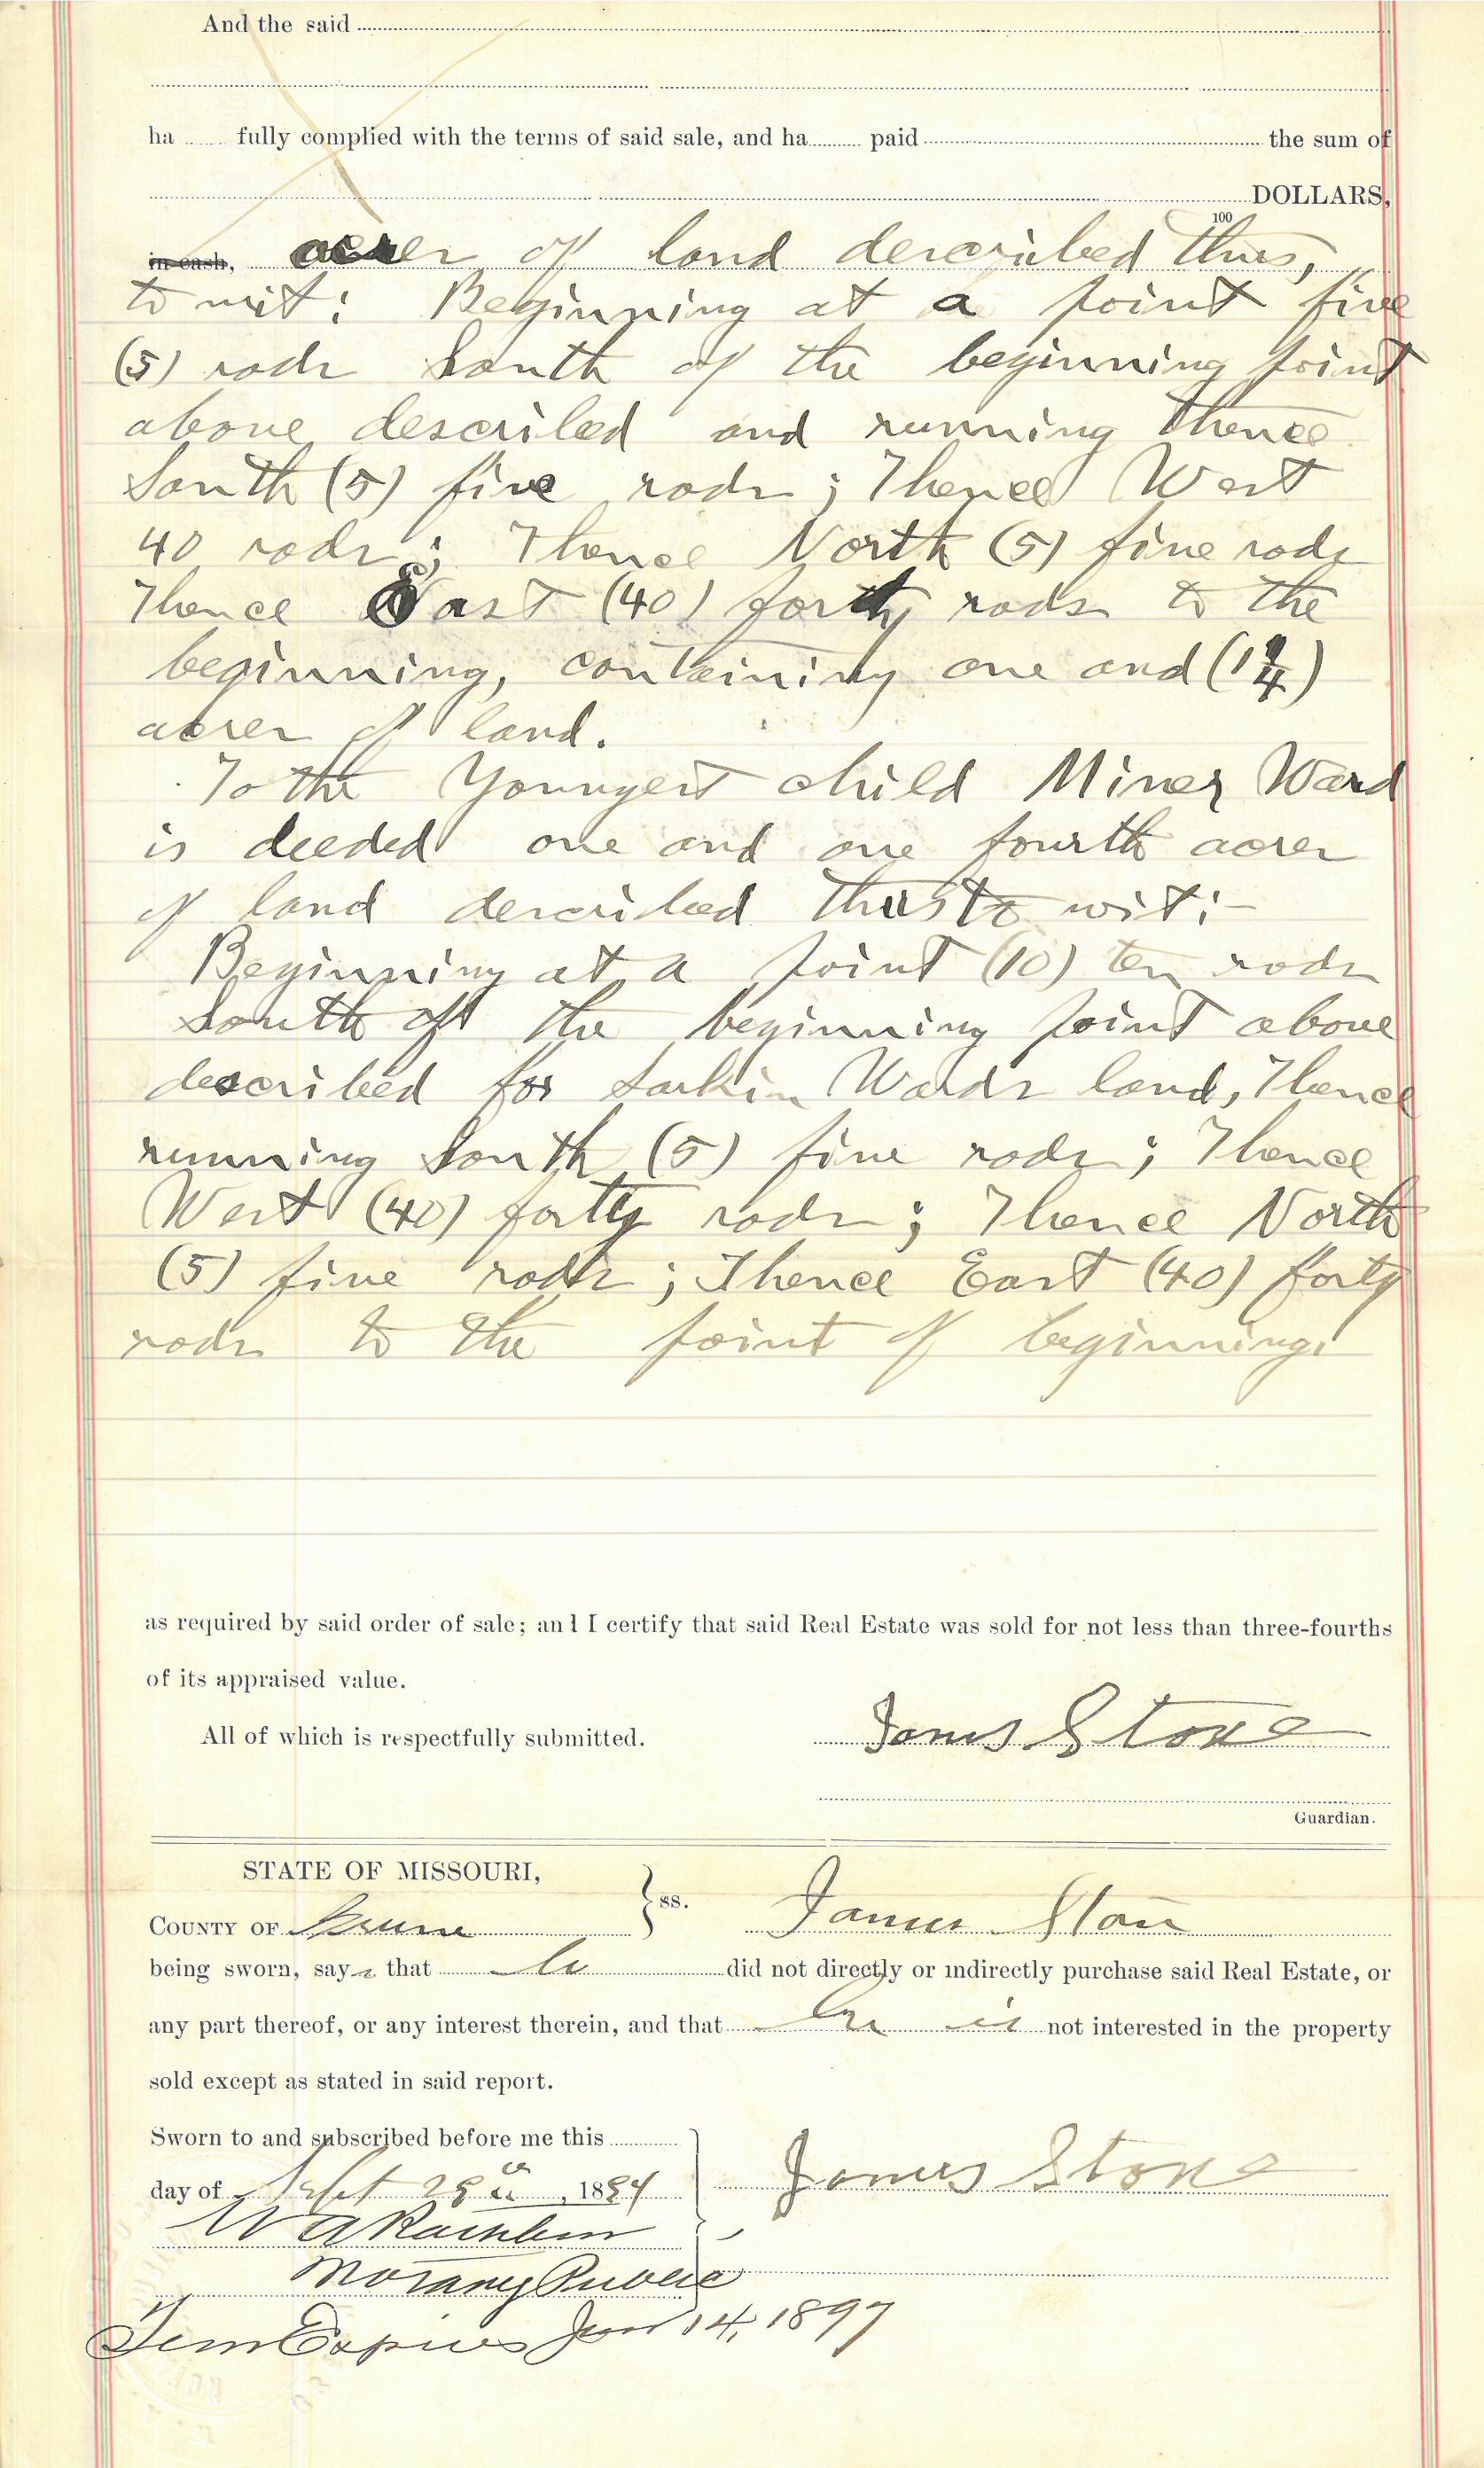 And the said
ha fully complied with the terms of said sale, and ha paid the sum of
DOLLARS,
100
in cash, acres of land described thus,
to wit: Beginning at a point five
(5) rods South of the beginning point
above described and running thence
South (5) five rods; Thence West
40 rods; Thence North (5) five rods
Thence East (40) forty rods to the
beginning, containing one and (1 1/4)
acres of land.
To the Youngest child Miner Ward
is deeded one and one fourth acres
of land described thus to wit:-
Beginning at a point (10) ten rods
South of the beginning point above
described for Larkin Wards land, Thence
running South (5) five rods; Thence
West (40) forty rods; Thence North
(5) five rods; Thence East (40) forty
rods to the point of beginning.
as required by said order of sale; and I certify that said Real Estate was sold for not less than three-fourths
of its appraised value.
All of which is respectfully submitted.
James Stone
Guardian.
STATE OF MISSOURI,
COUNTY OF Greene ss. James Stone
being sworn, says that he did not directly or indirectly purchase said Real Estate, or
any part thereof, or any interest therein, and that he is not interested in the property
sold except as stated in said report.
Sworn to and subscribed before me this
day of Sept 1894 James Stone
W A
Notary Public
Term Expires Jan 14, 1897